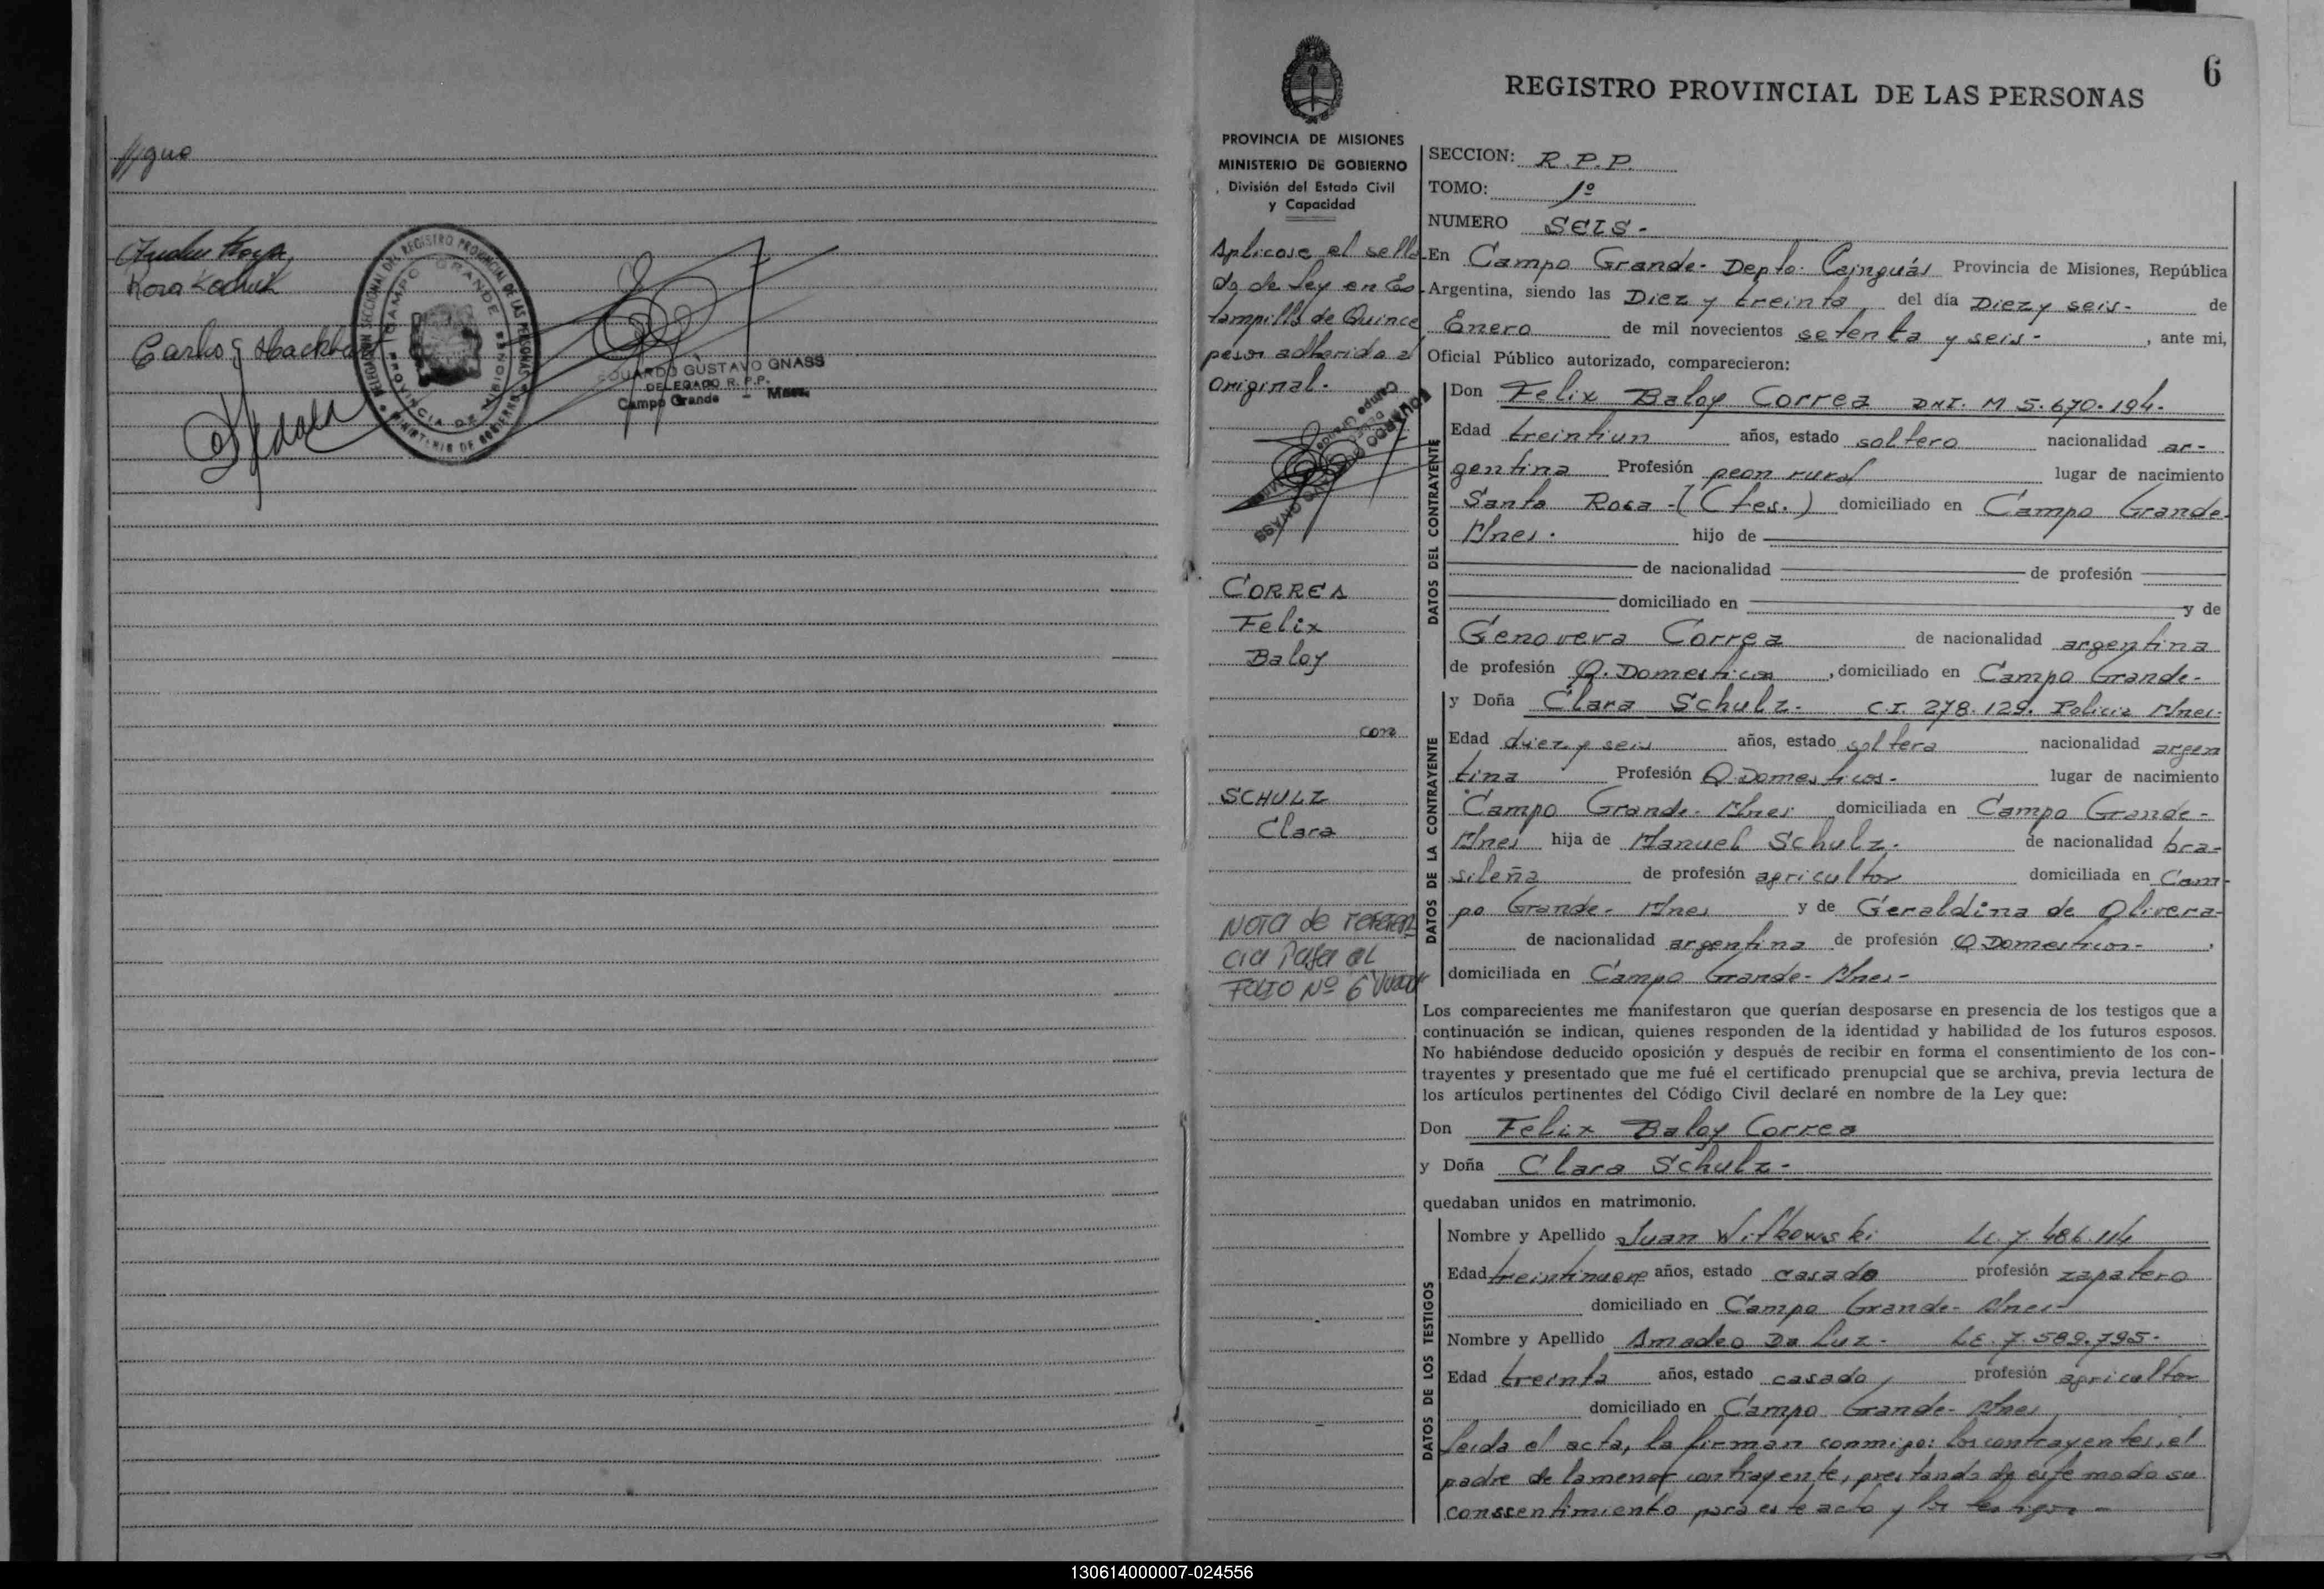 Rosa Kachuk
Carlos
REGISTRO PROVINCIAL DE LAS PERSONAS
CAMPO GRANDE
PROVINCIA DE MISIONES
EDUARDO GUSTAVO GNASS
DELEGADO R. P. P.
Campo Grande - Mnes.
6
REGISTRO PROVINCIAL DE LAS PERSONAS
PROVINCIA DE MISIONES
MINISTERIO DE GOBIERNO
División del Estado Civil
y Capacidad
Aplicose el sella-
do de Ley en Es-
tampilla de Quince
pesos adherida al
Original.
CORREA
Felix
Baloy
con
SCHULZ
Clara
Nota de referen
cia Pasa al
FOLIO Nº 6
SECCION: R.P.P.
TOMO: 1º
NUMERO SEIS.-
En Campo Grande- Depto. Cainguás Provincia de Misiones, República
Argentina, siendo las Diez y treinta del día Diez y seis- de
Enero de mil novecientos setenta y seis- , ante mi,
Oficial Público autorizado, comparecieron:
DATOS DEL CONTRAYENTE
Don Felix Baloy Correa DNI. M 5.670.194.
Edad treintiun años, estado soltero nacionalidad ar-
gentina Profesión peon rural lugar de nacimiento
Santa Rosa -(Ctes.) domiciliado en Campo Grande-
Mnes. hijo de
de nacionalidad de profesión
domiciliado en y de
Genoveva Correa de nacionalidad argentina
de profesión Q. Domesticos , domiciliado en Campo Grande-
DATOS DE LA CONTRAYENTE
y Doña Clara Schulz- C.I. 278.129. Policia Mnes.
Edad diez y seis años, estado soltera nacionalidad argen
tina Profesión Q. Domesticos- lugar de nacimiento
Campo Grande- Mnes domiciliada en Campo Grande-
Mnes hija de Manuel Schulz. de nacionalidad bra-
sileña de profesión agricultor domiciliada en Cam-
po Grande- Mnes y de Geraldina de Olivera-
de nacionalidad argentina de profesión Q. Domesticos- ,
domiciliada en Campo Grande- Mnes-
Los comparecientes me manifestaron que querían desposarse en presencia de los testigos que a
continuación se indican, quienes responden de la identidad y habilidad de los futuros esposos.
No habiéndose deducido oposición y después de recibir en forma el consentimiento de los con-
trayentes y presentado que me fué el certificado prenupcial que se archiva, previa lectura de
los artículos pertinentes del Código Civil declaré en nombre de la Ley que:
Don Felix Baloy Correa
y Doña Clara Schulz-
quedaban unidos en matrimonio.
DATOS DE LOS TESTIGOS
Nombre y Apellido Juan Witkowski L.E. 7.486.114
Edad treintinueve años, estado casado profesión zapatero
domiciliado en Campo Grande- Mnes-
Nombre y Apellido Amadeo Da Luz- L.E. 7.589.795-
Edad treinta años, estado casado, profesión agricultor
domiciliado en Campo Grande- Mnes
Leida el acta, la firman conmigo: los contrayentes, el
padre de la menor contrayente, prestando de este modo su
conssentimiento para este acto y los testigos-
130614000007-024556